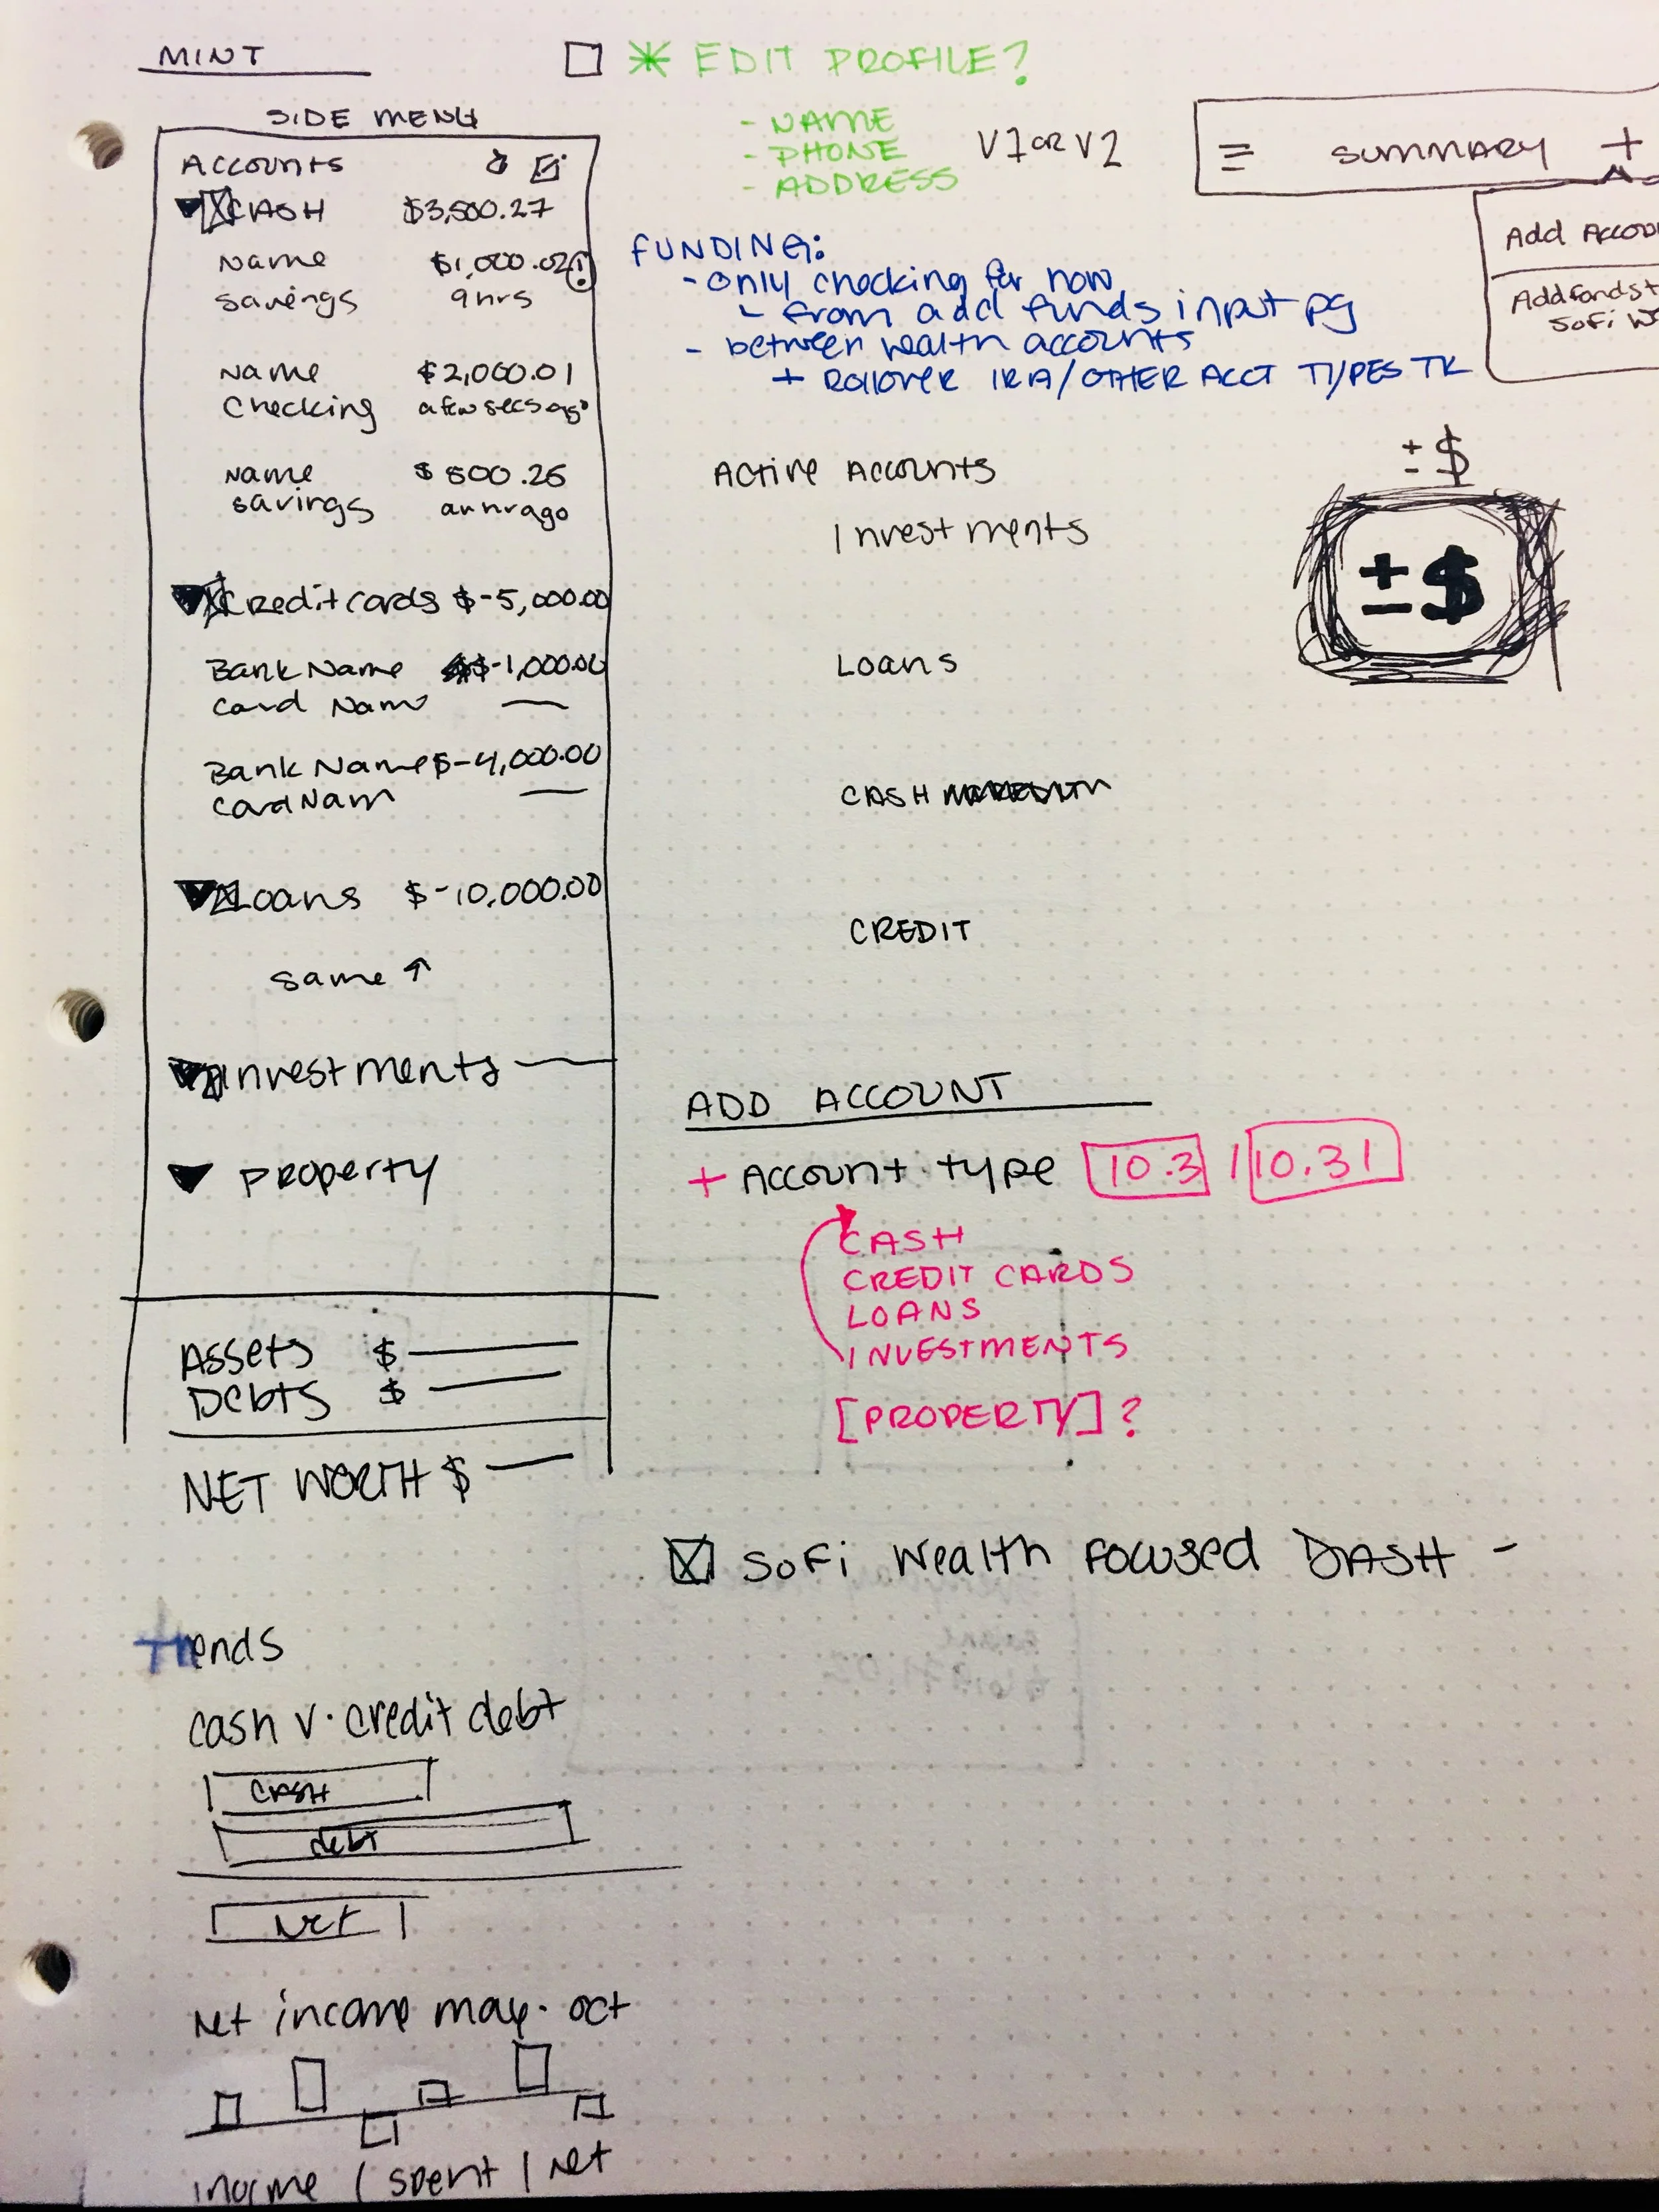 MINT
SIDE MENU
ACCOUNTS
CASH $3,500.27
Name $1,000.02 !
Savings 9hrs
Name $2,000.01
Checking a few secs ago
Name $500.25
Savings an hr ago
Credit cards $-5,000.00
Bank Name $-1,000.00
Card Name
Bank Name $-4,000.00
Card Nam
Loans $-10,000.00
same ↑
Investments
Property
Assets $
Debts $
NET WORTH $
Trends
cash v. credit debt
CASH
debt
Net
Net income may. oct
income / spent / net
* EDIT PROFILE?
- NAME
- PHONE
- ADDRESS
V1 OR V2
FUNDING:
- only checking for now
from add funds input pg
- between wealth accounts
+ ROLLOVER IRA/OTHER ACCT TYPES TK
Active Accounts
Investments
Loans
CASH
CREDIT
ADD ACCOUNT
+ Account type 10.3 / 10.31
CASH
CREDIT CARDS
LOANS
INVESTMENTS
[PROPERTY]?
SoFi Wealth Focused DASH -
SUMMARY +
Add Accou
Add funds t
SoFi We
± $
± $